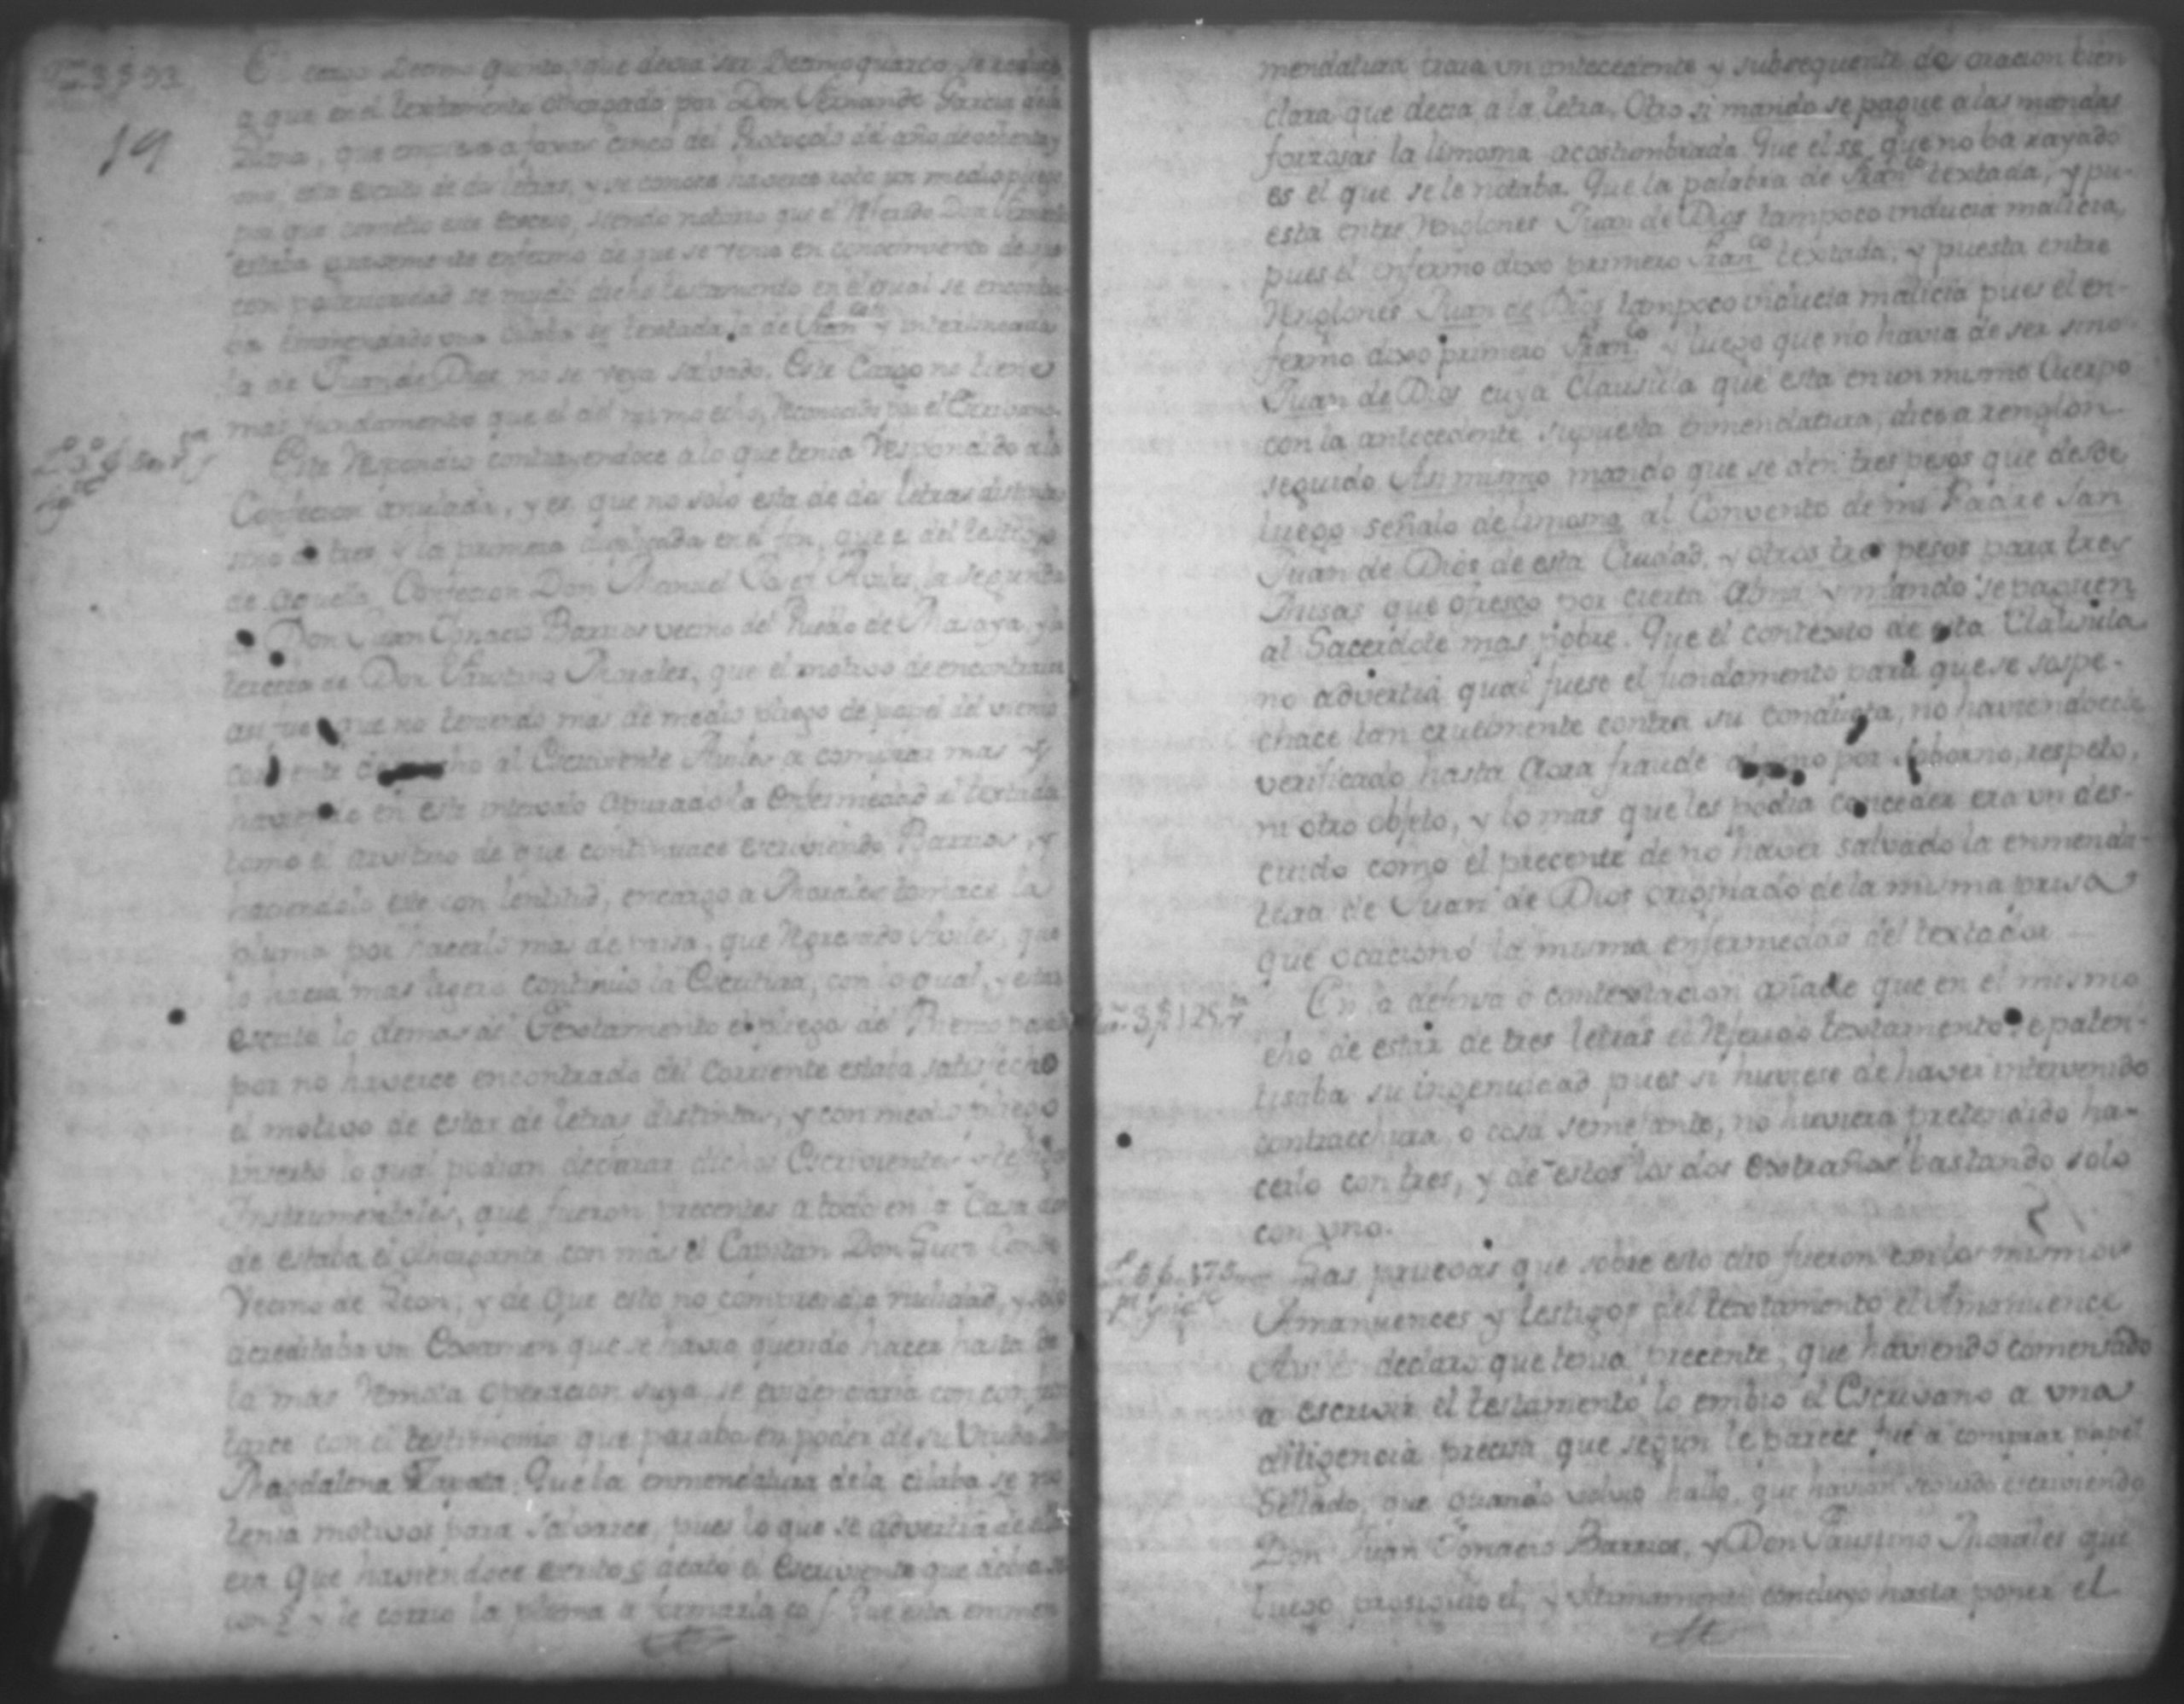 19
El cargo Decimo quinto, que devia ser Decimoquarto se reduce
a que en el textamento othorgado por Don Fernando Garcia de la
que empiesa a foxas cinco del Protocolo del año de ochenta y
uno, esta escrito de dos letras, y se conoce haverce roto un medio pliego
por que cometio este Exceso, siendo notorio que el referido Don Fernando
estaba gravemente enfermo de que se venia en conocimiento de que
con posterioridad se mudó dicho testamento en el qual se encontra-
ba enmendado una cilaba se textada la de Franco y interlineada
la de Juan de Dios no se veya salvado. Este Cargo no tiene
mas fundamento que el del mismo echo, reconocido por el Escrivano.
Este Respondio contrayendoce a lo que tenia Respondido a la
Confecion anulada, y es que no solo esta de dos letras distintas
sino de tres y la primera en el fin, que es del testigo
de aquella Confecion Don Manuel Aviles, la segunda
Don Juan Ignacio Barrios vecino del Pueblo de Masaya, y la
tercera de Don Faustino Morales, que el motivo de encontrarce
asi fue que no teniendo mas de medio pliego de papel del vienio
corriente al Escriviente Aviles a comprar mas y
haviendo en este intervalo apurado la enfermedad al textador
tomó el arvitrio de que continuace escriviendo Barrios, y
haciendolo este con lentitud, encargo a Morales tomace la
pluma por hacerlo mas de prisa, que Regresado Aviles, que
lo hacia mas ligero continuó la Escritura, con lo qual, y estar
escrito lo demas del Textamento en pliego del Vienio pasado
por no haverce encontrado del Corriente estaba satisfecho
el motivo de estar de letras distintas, y con medio pliego
inserto lo qual podian declarar dichos Escrivientes y testigos
Instrumentales, que fueron precentes a todo en la Casa don-
de estaba el othorgante con mas el Capitan Don
Vecino de Leon, y de que esto no comprende nulidad, y solo
acreditaba un Examen que se havia querido hacer hasta de
la mas remota operacion suya se evidenciaria con confron-
tarce con el testimonio que paraba en poder de su Viuda Da.
Magdalena Zapata. Que la enmendatura de la cilaba se no
tenia motivos para salvarce, pues lo que se advertia de ella
era que haviendoce escrito acato el Escriviente que devia ser
con y le corrio la pluma a formarla Que esta emmen
mendatura traia un antecedente y subsequente de oracion bien
clara que decia a la letra. Otro si mando se pague a las mandas
forzosas la limosna acostumbrada Que el se que no ba rayado
es el que se le notaba. Que la palabra de Franco textada, y pu-
esta entre Renglones Juan de Dios tampoco inducia malicia,
pues el enfermo dixo primero Franco textada, y puesta entre
Renglones Juan de Dios tampoco inducia malicia pues el en-
fermo dixo primero Franco y luego que no havia de ser sino
Juan de Dios cuya Clausula que esta en un mismo Cuerpo
con la antecedente supuesta enmendatura, dice a renglon
seguido Asi mismo mando que se den tres pesos que desde
luego señalo de limosna al Convento de mi Padre San
Juan de Dios de esta Ciudad, y otros tres pesos para tres
Missas que ofresco por cierta Alma y mando se paguen
al Sacerdote mas pobre. Que el contexto de esta Clausula
no advertia qual fuese el fundamento para que se sospe-
chace tan cruelmente contra su conducta, no haviendocele
verificado hasta aora fraude alguno por soborno, respeto,
ni otro objeto, y lo mas que les podia conceder era un des-
cuido como el precente de no haver salvado la enmenda-
tura de Juan de Dios originado de la misma prisa
que ocacionó la misma enfermedad del textador
En la defensa o contextacion añade que en el mismo
echo de estar de tres letras el Referido textamento se paten-
tisaba su ingenuidad pues si huviese de haver intervenido
contraechura, o cosa semejante, no huviera pretendido ha-
cerlo con tres, y de estos los dos extraños bastando solo
con uno.
Las pruebas que sobre esto dio fueron con los mismos
Amanuences y testigos del textamento el Amanuence
Aviles declaró que tenia precente, que haviendo comensado
a escrivir el testamento lo embio el Escrivano a una
diligencia precisa que segun le parece fué a comprar papel
Sellado, que quando volvio halló, que havian seguido escriviendo
Don Juan Ignacio Barrios, y Don Faustino Morales que
luego prosiguio el, y ultimamente concluyo hasta poner el